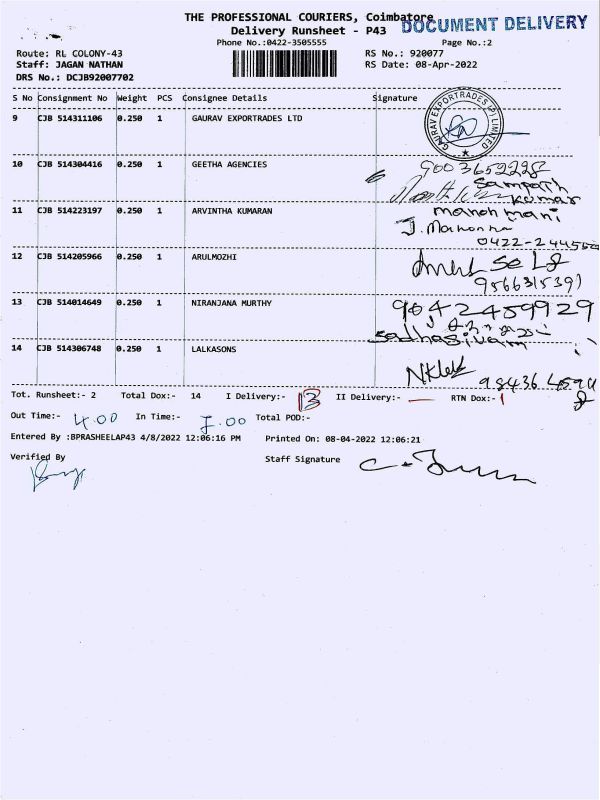 THE PROFESSIONAL COURIERS, Coimbatore
DOCUMENT DELIVERY
Delivery Runsheet - P43
Phone No.:0422-3505555 Page No.:2
Route: RL COLONY-43 RS No.: 920077
Staff: JAGAN NATHAN RS Date: 08-Apr-2022
DRS No.: DCJB92007702
S No Consignment No Weight PCS Consignee Details Signature
9 CJB 514311106 0.250 1 GAURAV EXPORTRADES LTD
GAURAV EXPORTRADES (P) LIMITED
10 CJB 514304416 0.250 1 GEETHA AGENCIES
9003652228
Sampath
kumar
11 CJB 514223197 0.250 1 ARVINTHA KUMARAN
manoh mani
0422-244550
12 CJB 514205966 0.250 1 ARULMOZHI
9566315391
13 CJB 514014649 0.250 1 NIRANJANA MURTHY
9042459929
Sadhasivam
14 CJB 514306748 0.250 1 LALKASONS
Tot. Runsheet:- 2 Total Dox:- 14 I Delivery:- 13 II Delivery:- — RTN Dox:- 1
Out Time:- 4.00 In Time:- 7.00 Total POD:-
Entered By :BPRASHEELAP43 4/8/2022 12:06:16 PM Printed On: 08-04-2022 12:06:21
Verified By Staff Signature